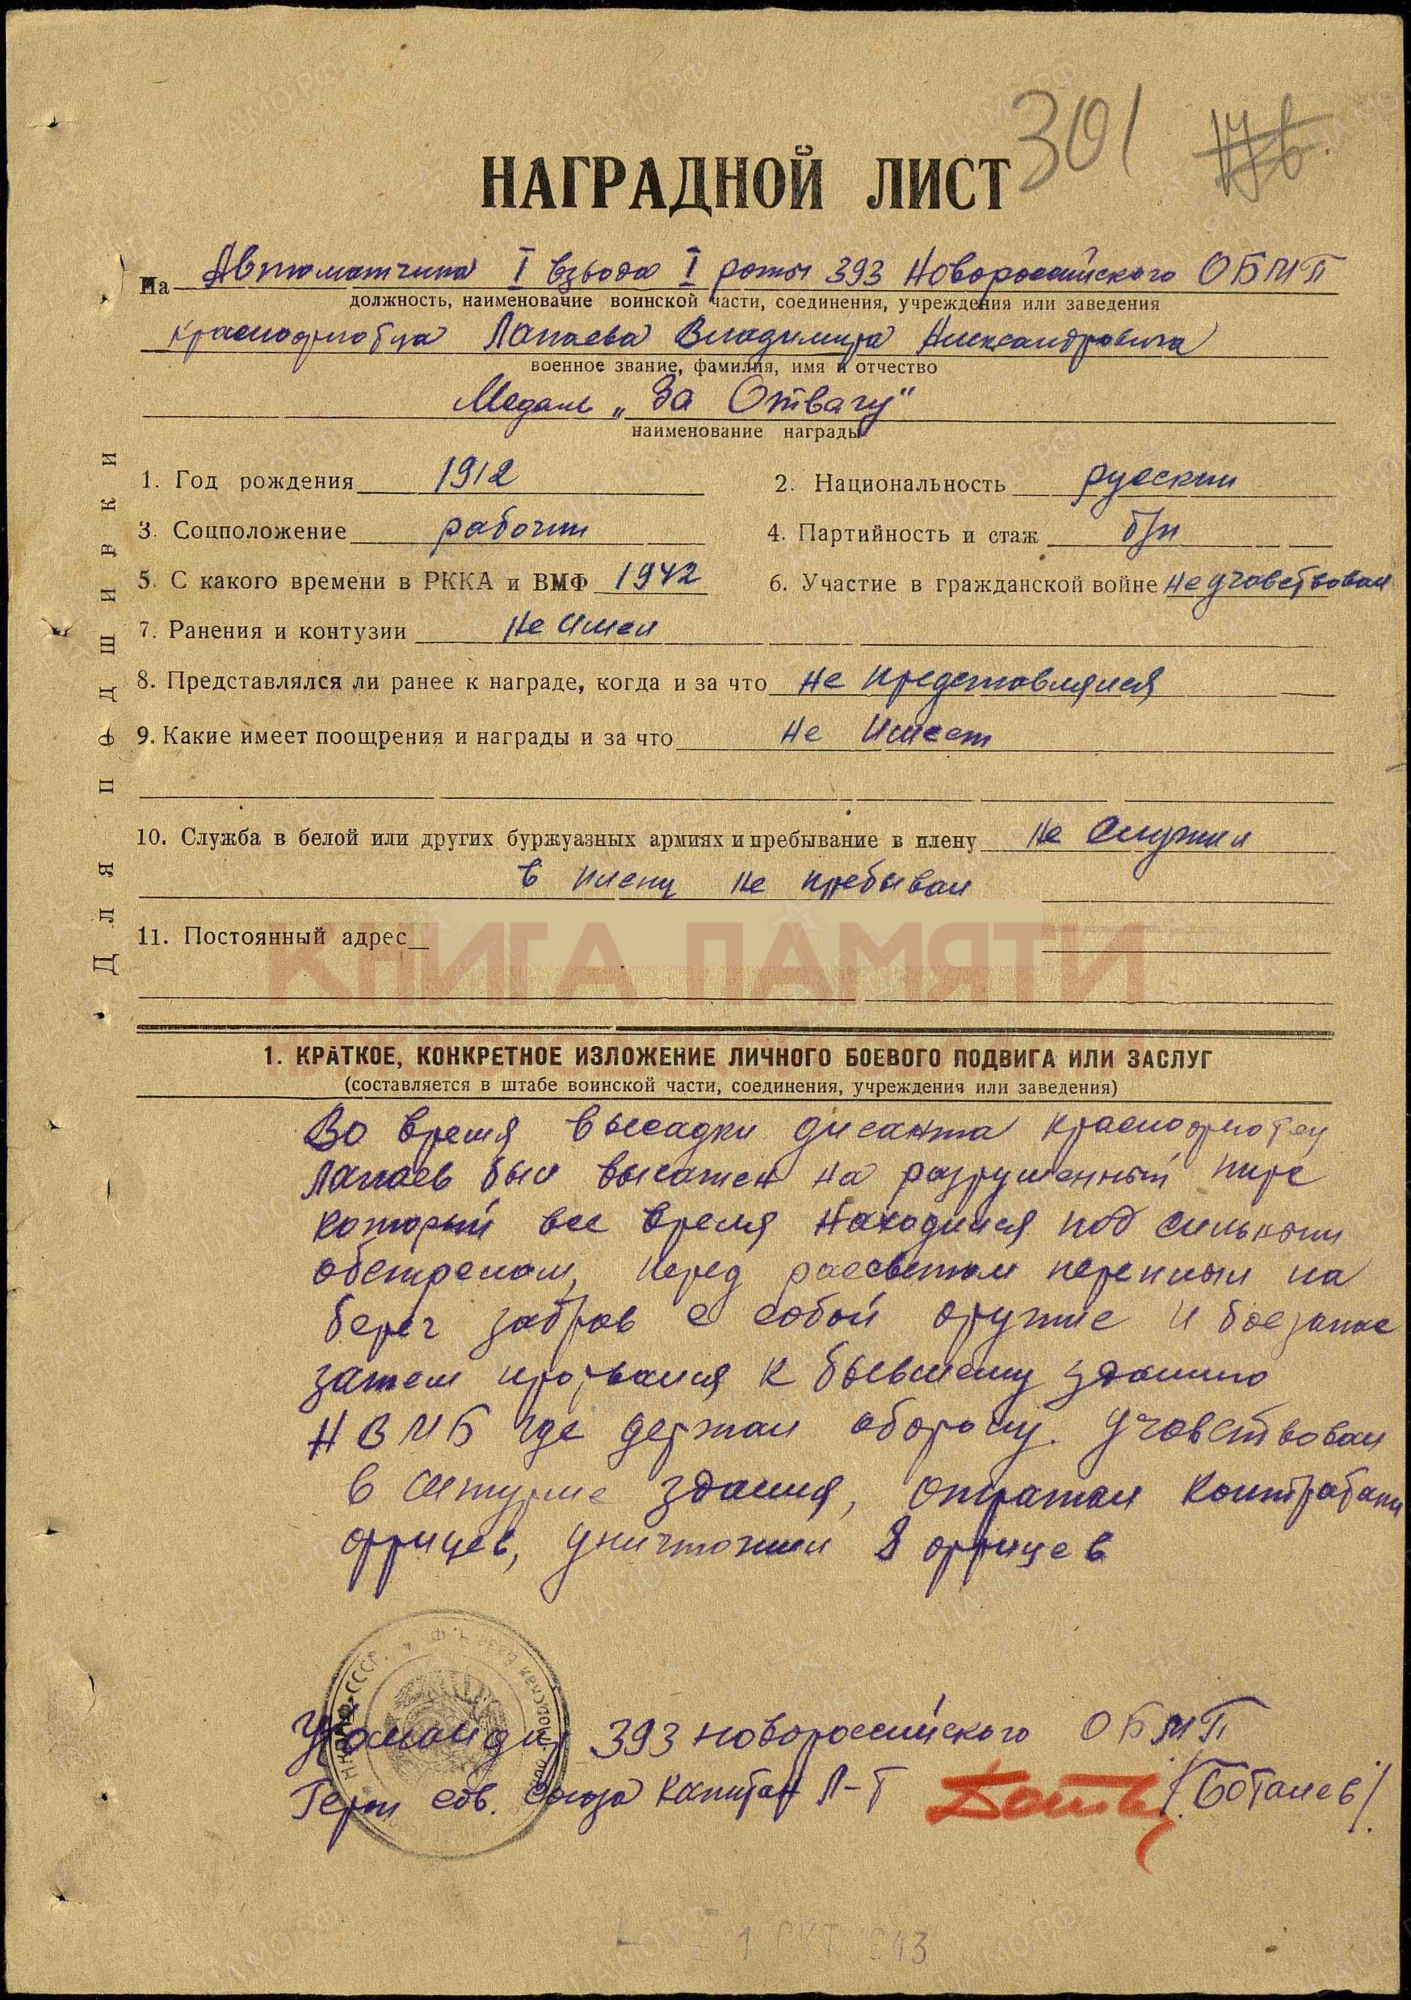 301
НАГРАДНОЙ ЛИСТ
На Автоматчика I взвода I роты 393 Новороссийского ОБМП
должность, наименование воинской части, соединения, учреждения или заведения
краснофлотца Лапаева Владимира Александровича
военное звание, фамилия, имя и отчество
Медаль „За Отвагу"
наименование награды
1. Год рождения 1912
2. Национальность русский
3. Соцположение рабочий
4. Партийность и стаж б/п
5. С какого времени в РККА и ВМФ 1942
6. Участие в гражданской войне не учавствовал
7. Ранения и контузии не имел
8. Представлялся ли ранее к награде, когда и за что не представлялся
9. Какие имеет поощрения и награды и за что не имеет
10. Служба в белой или других буржуазных армиях и пребывание в плену не служил
в плену не пребывал
11. Постоянный адрес
КНИГА ПАМЯТИ
Для подшивки
1. КРАТКОЕ, КОНКРЕТНОЕ ИЗЛОЖЕНИЕ ЛИЧНОГО БОЕВОГО ПОДВИГА ИЛИ ЗАСЛУГ
(составляется в штабе воинской части, соединения, учреждения или заведения)
Во время высадки дисанта краснофлотец
Лапаев был высажен на разрушенный пирс
который все время находился под сильным
обстрелом, перед рассветом переплыл на
берег забрав с собой оружие и боезапас
затем прорвался к бывшему зданию
НВМБ где держал оборону. Учавствовал
в штурме здания, отражал контратаки
фрицев, уничтожил 8 фрицев
Командир 393 новороссийского ОБМП
Герой сов. союза капитан Л-Т /Ботылев/
1 ОКТ 1943
ЦАМО.РФ